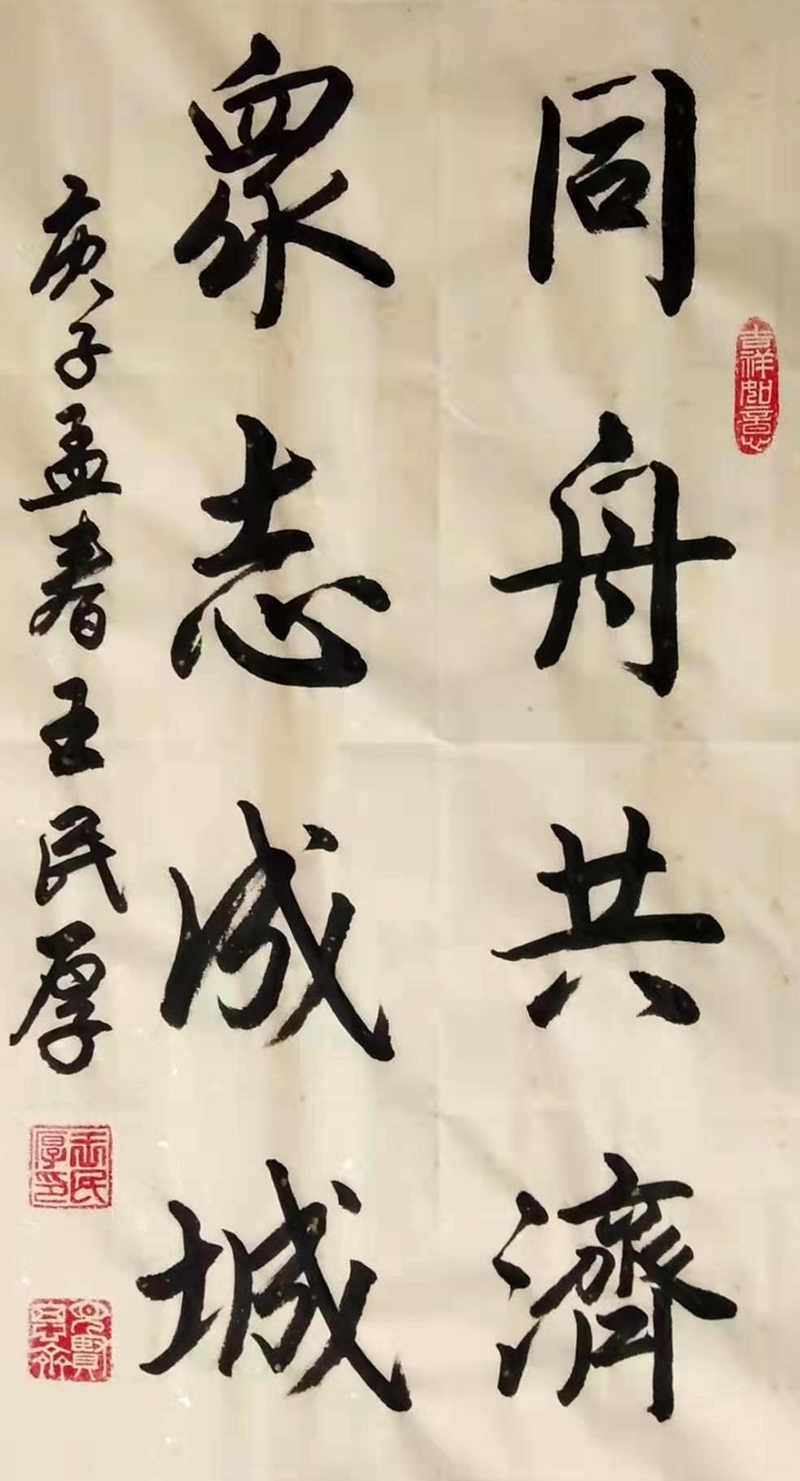 同舟共濟
眾志成城
庚子孟春王民厚
吉祥如意
王民厚印